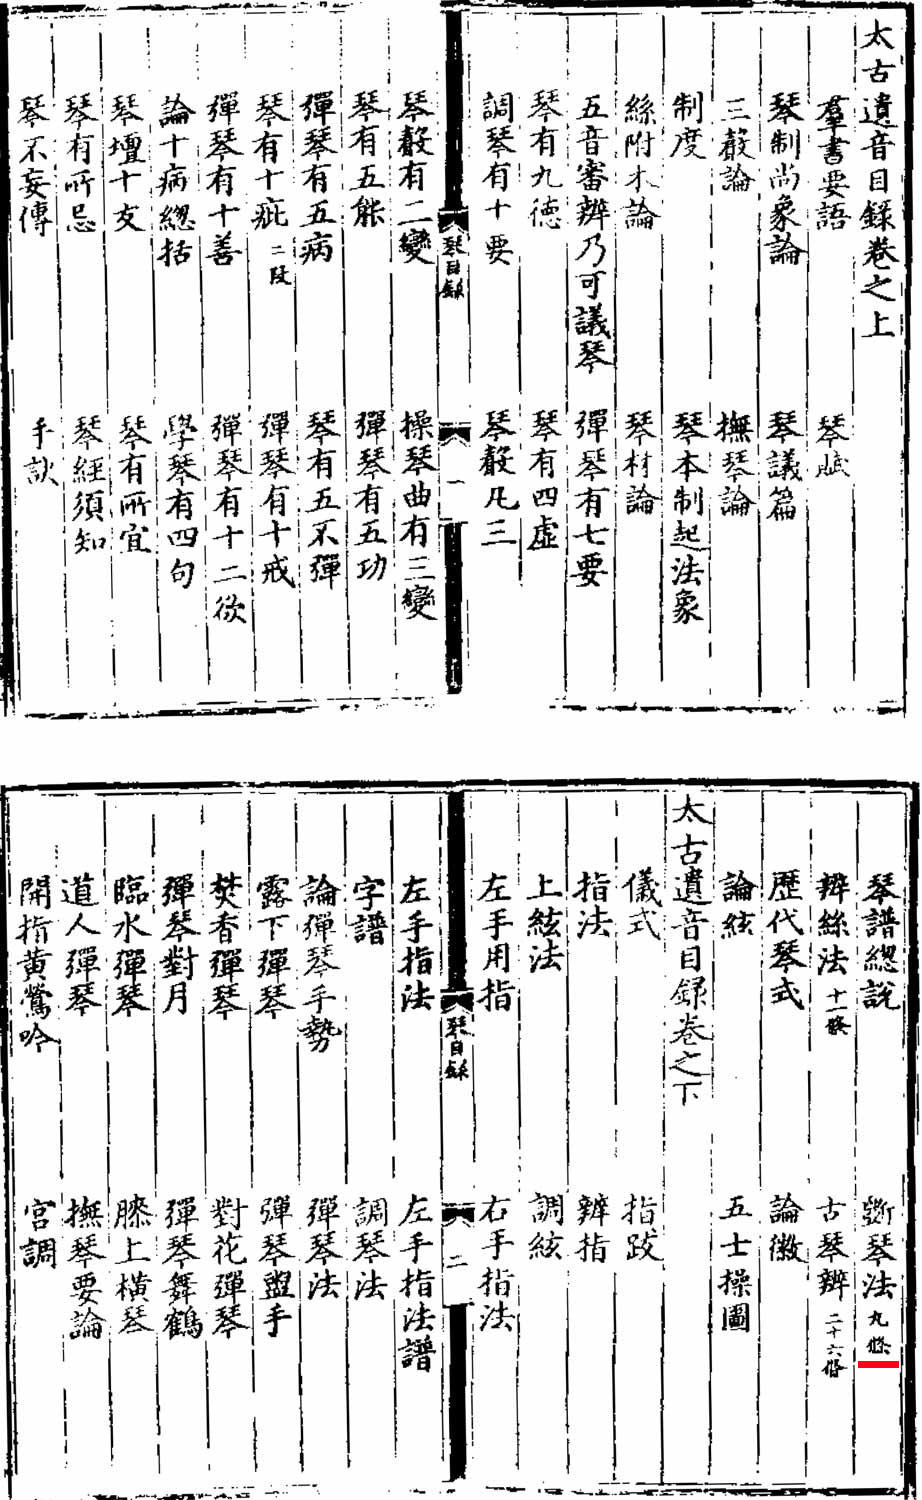 太古遺音目錄卷之上
羣書要語 琴賦
琴制尚象論 琴議篇
三聲論 撫琴論
制度 琴本制起法象
絲附木論 琴材論
五音審辨乃可議琴 彈琴有七要
琴有九德 琴有四虛
調琴有十要 琴聲凡三
琴目錄 一
琴聲有二變 操琴曲有三變
琴有五能 彈琴有五功
彈琴有五病 琴有五不彈
琴有十疵 二段 彈琴有十戒
彈琴有十善 彈琴有十二欲
論十病總括 學琴有四句
琴壇十友 琴有所宜
琴有所忌 琴經須知
琴不妄傳 手訣
琴譜總說 斲琴法 九條
辨絲法 十一條 古琴辨 二十六條
歷代琴式 論徽
論絃 五士操圖
太古遺音目錄卷之下
儀式 指跋
指法 辨指
上絃法 調絃
左手用指 右手指法
琴目錄 二
左手指法 左手指法譜
字譜 調琴法
論彈琴手勢 彈琴法
露下彈琴 彈琴盥手
焚香彈琴 對花彈琴
彈琴對月 彈琴舞鶴
臨水彈琴 膝上橫琴
道人彈琴 撫琴要論
開指黃鶯吟 宮調